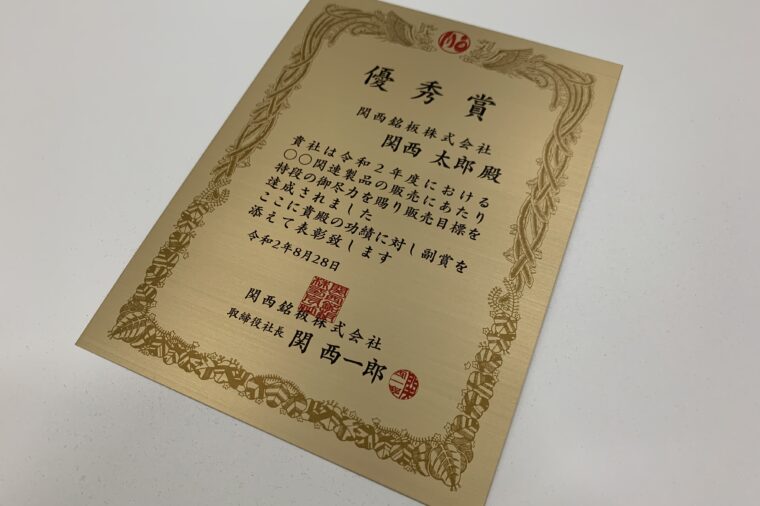 優秀賞
関西銘板株式会社
関西 太郎 殿
貴社は令和2年度における
〇〇関連製品の販売にあたり
特段の御尽力を賜り販売目標を
達成されました
ここに貴殿の功績に対し副賞を
添えて表彰致します
令和2年8月28日
関西銘板株式会社
取締役社長 関 西一郎